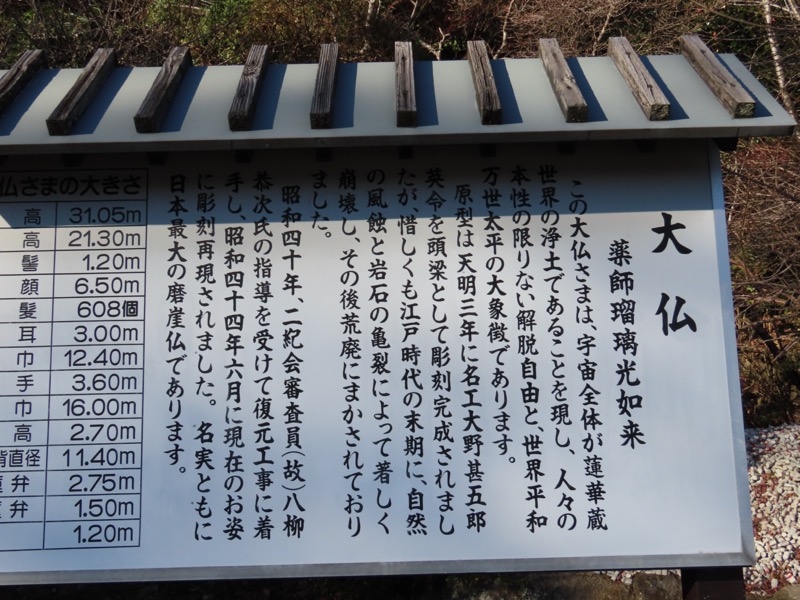 大仏
薬師瑠璃光如来
この大仏さまは、宇宙全体が蓮華蔵
世界の浄土であることを現し、人々の
本性の限りない解脱自由と、世界平和
万世太平の大象徴であります。
原型は天明三年に名工大野甚五郎
英令を頭梁として彫刻完成されまし
たが、惜しくも江戸時代の末期に、自然
の風蝕と岩石の亀裂によって著しく
崩壊し、その後荒廃にまかされており
ました。
昭和四十年、二紀会審査員(故)八柳
恭次氏の指導を受けて復元工事に着
手し、昭和四十四年六月に現在のお姿
に彫刻再現されました。名実ともに
日本最大の磨崖仏であります。
仏さまの大きさ
高 31.05m
高 21.30m
髻 1.20m
顔 6.50m
髪 608個
耳 3.00m
巾 12.40m
手 3.60m
巾 16.00m
高 2.70m
直径 11.40m
弁 2.75m
弁 1.50m
1.20m